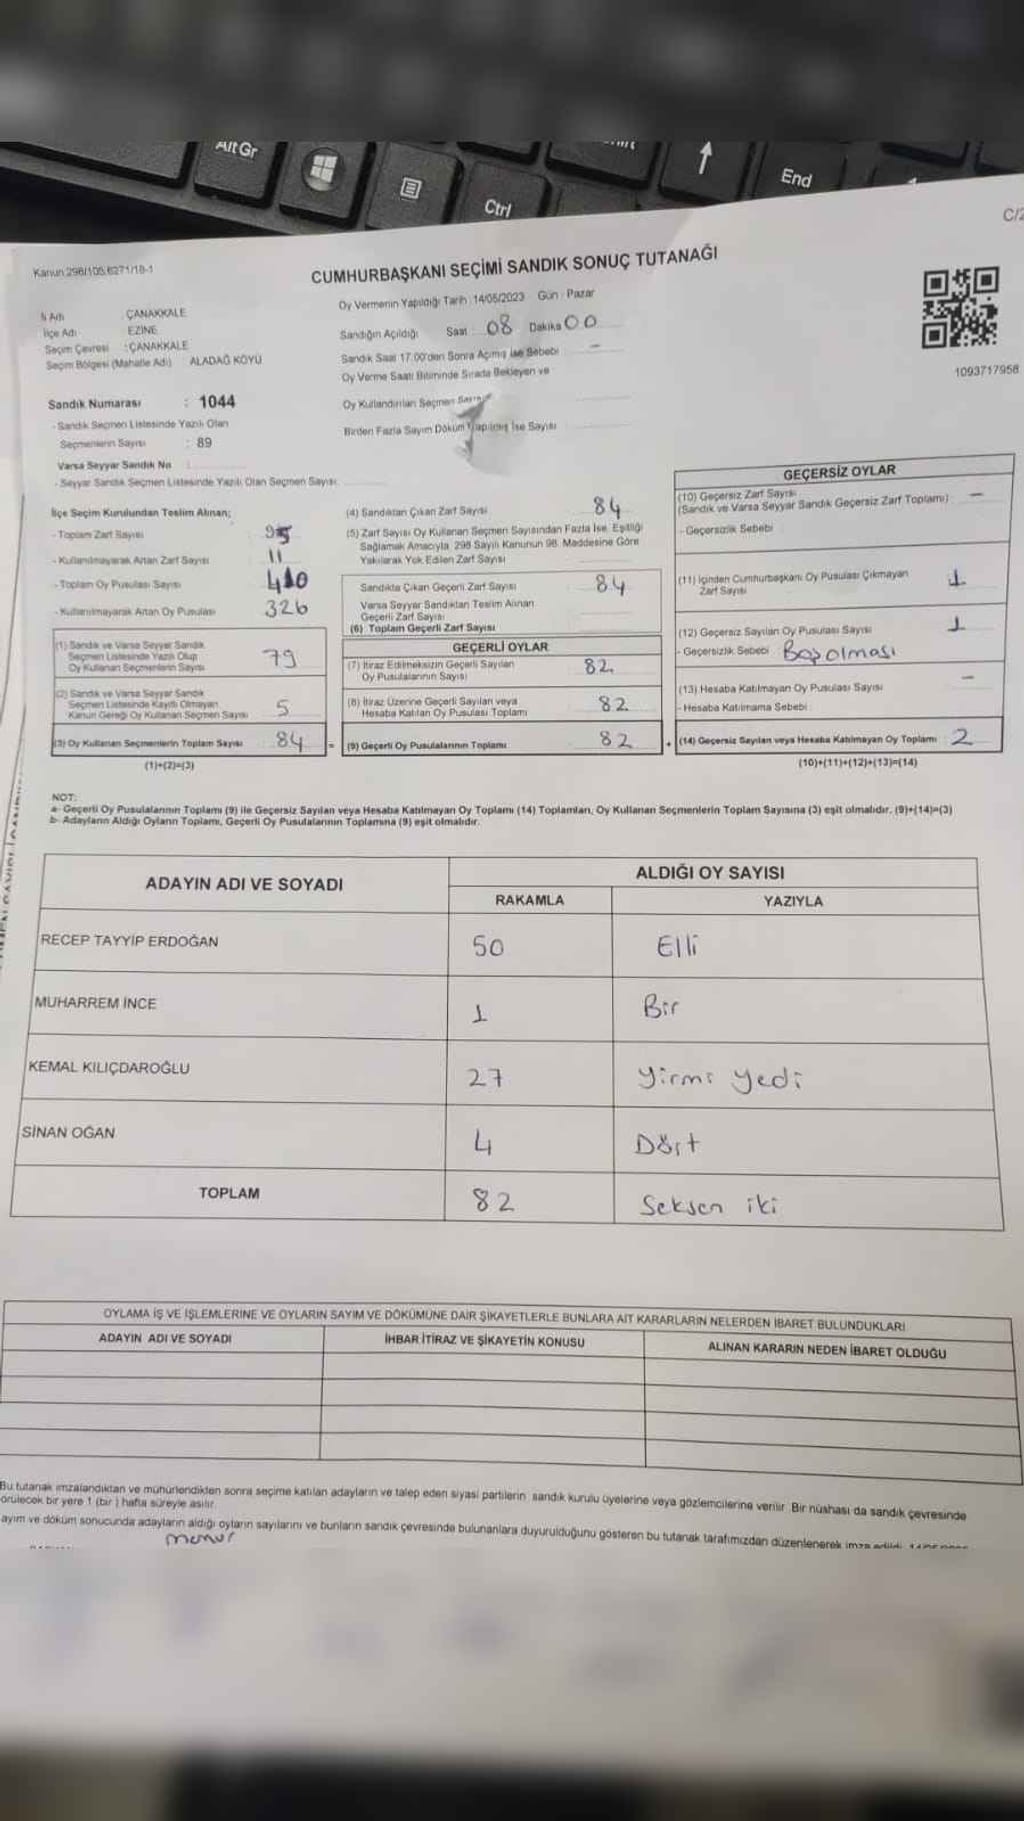 AltGr
Ctrl
End
C/2
Kanun 298/105,6271/18-1
CUMHURBAŞKANI SEÇİMİ SANDIK SONUÇ TUTANAĞI
Oy Vermenin Yapıldığı Tarih : 14/05/2023 Gün : Pazar
İl Adı : ÇANAKKALE
İlçe Adı : EZİNE
Seçim Çevresi : ÇANAKKALE
Seçim Bölgesi (Mahalle Adı) ALADAĞ KÖYÜ
Sandığın Açıldığı Saat 08 Dakika 00
Sandık Saat 17.00'den Sonra Açmış İse Sebebi –
Oy Verme Saati Bitiminde Sırada Bekleyen ve
Oy Kullandırılan Seçmen
Birden Fazla Sayım Döküm Yapılmış İse Sayısı
1093717958
Sandık Numarası : 1044
- Sandık Seçmen Listesinde Yazılı Olan
Seçmenlerin Sayısı : 89
Varsa Seyyar Sandık No :
- Seyyar Sandık Seçmen Listesinde Yazılı Olan Seçmen Sayısı
İlçe Seçim Kurulundan Teslim Alınan;
- Toplam Zarf Sayısı 95
- Kullanılmayarak Artan Zarf Sayısı 11
- Toplam Oy Pusulası Sayısı 410
- Kullanılmayarak Artan Oy Pusulası 326
(1) Sandık ve Varsa Seyyar Sandık
Seçmen Listesinde Yazılı Olup
Oy Kullanan Seçmenlerin Sayısı 79
(2) Sandık ve Varsa Seyyar Sandık
Seçmen Listesinde Kayıtlı Olmayan
Kanun Gereği Oy Kullanan Seçmen Sayısı 5
(3) Oy Kullanan Seçmenlerin Toplam Sayısı 84 =
(1)+(2)=(3)
(4) Sandıktan Çıkan Zarf Sayısı 84
(5) Zarf Sayısı Oy Kullanan Seçmen Sayısından Fazla İse, Eşitliği
Sağlamak Amacıyla, 298 Sayılı Kanunun 98. Maddesine Göre
Yakılarak Yok Edilen Zarf Sayısı
Sandıkta Çıkan Geçerli Zarf Sayısı 84
Varsa Seyyar Sandıktan Teslim Alınan
Geçerli Zarf Sayısı
(6) Toplam Geçerli Zarf Sayısı
GEÇERLİ OYLAR
(7) İtiraz Edilmeksizin Geçerli Sayılan
Oy Pusulalarının Sayısı 82
(8) İtiraz Üzerine Geçerli Sayılan veya
Hesaba Katılan Oy Pusulası Toplamı 82
(9) Geçerli Oy Pusulalarının Toplamı 82 +
GEÇERSİZ OYLAR
(10) Geçersiz Zarf Sayısı
(Sandık ve Varsa Seyyar Sandık Geçersiz Zarf Toplamı) –
- Geçersizlik Sebebi
(11) İçinden Cumhurbaşkanı Oy Pusulası Çıkmayan
Zarf Sayısı 1
(12) Geçersiz Sayılan Oy Pusulası Sayısı 1
- Geçersizlik Sebebi Boş olması
(13) Hesaba Katılmayan Oy Pusulası Sayısı –
- Hesaba Katılmama Sebebi :
(14) Geçersiz Sayılan veya Hesaba Katılmayan Oy Toplamı 2
(10)+(11)+(12)+(13)=(14)
NOT:
a- Geçerli Oy Pusulalarının Toplamı (9) ile Geçersiz Sayılan veya Hesaba Katılmayan Oy Toplamı (14) Toplamları, Oy Kullanan Seçmenlerin Toplam Sayısına (3) eşit olmalıdır. (9)+(14)=(3)
b- Adayların Aldığı Oyların Toplamı, Geçerli Oy Pusulalarının Toplamına (9) eşit olmalıdır.
ADAYIN ADI VE SOYADI
ALDIĞI OY SAYISI
RAKAMLA YAZIYLA
RECEP TAYYİP ERDOĞAN 50 Elli
MUHARREM İNCE 1 Bir
KEMAL KILIÇDAROĞLU 27 Yirmi yedi
SİNAN OĞAN 4 Dört
TOPLAM 82 Seksen iki
OYLAMA İŞ VE İŞLEMLERİNE VE OYLARIN SAYIM VE DÖKÜMÜNE DAİR ŞİKAYETLERLE BUNLARA AİT KARARLARIN NELERDEN İBARET BULUNDUKLARI
ADAYIN ADI VE SOYADI İHBAR İTİRAZ VE ŞİKAYETİN KONUSU ALINAN KARARIN NEDEN İBARET OLDUĞU
Bu tutanak imzalandıktan ve mühürlendikten sonra seçime katılan adayların ve talep eden siyasi partilerin sandık kurulu üyelerine veya gözlemcilerine verilir. Bir nüshası da sandık çevresinde
örülecek bir yere 1 (bir ) hafta süreyle asılır.
ayım ve döküm sonucunda adayların aldığı oyların sayılarını ve bunların sandık çevresinde bulunanlara duyurulduğunu gösteren bu tutanak tarafımızdan düzenlenerek imza edildi.
memur